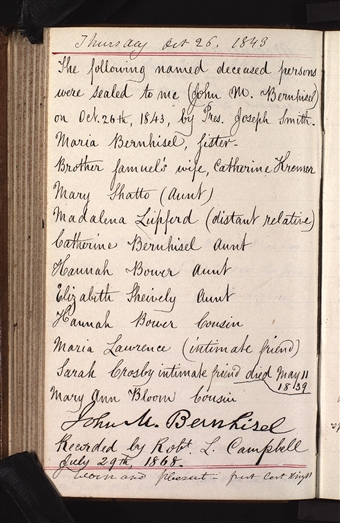 Thursday Oct 26. 1843
The following named deceased persons
were sealed to me (John M. Bernhisel)
on Oct. 26th, 1843, by Pres. Joseph Smith-
Maria Bernhisel, sister-
Brother Samuel's wife, Catherine Kremer
Mary Shatto (Aunt)
Madalena Lupferd (distant relative)
Catherine Bernhisel Aunt
Hannah Bower Aunt
Elizabeth Sheively Aunt
Hannah Bower Cousin
Maria Lawrence (intimate friend)
Sarah Crosby intimate friend died May 11
1839
Mary Ann Bloom Cousin
John M. Bernhisel
Recorded by Robt. L. Campbell
July 29th, 1868.
and pleasant-